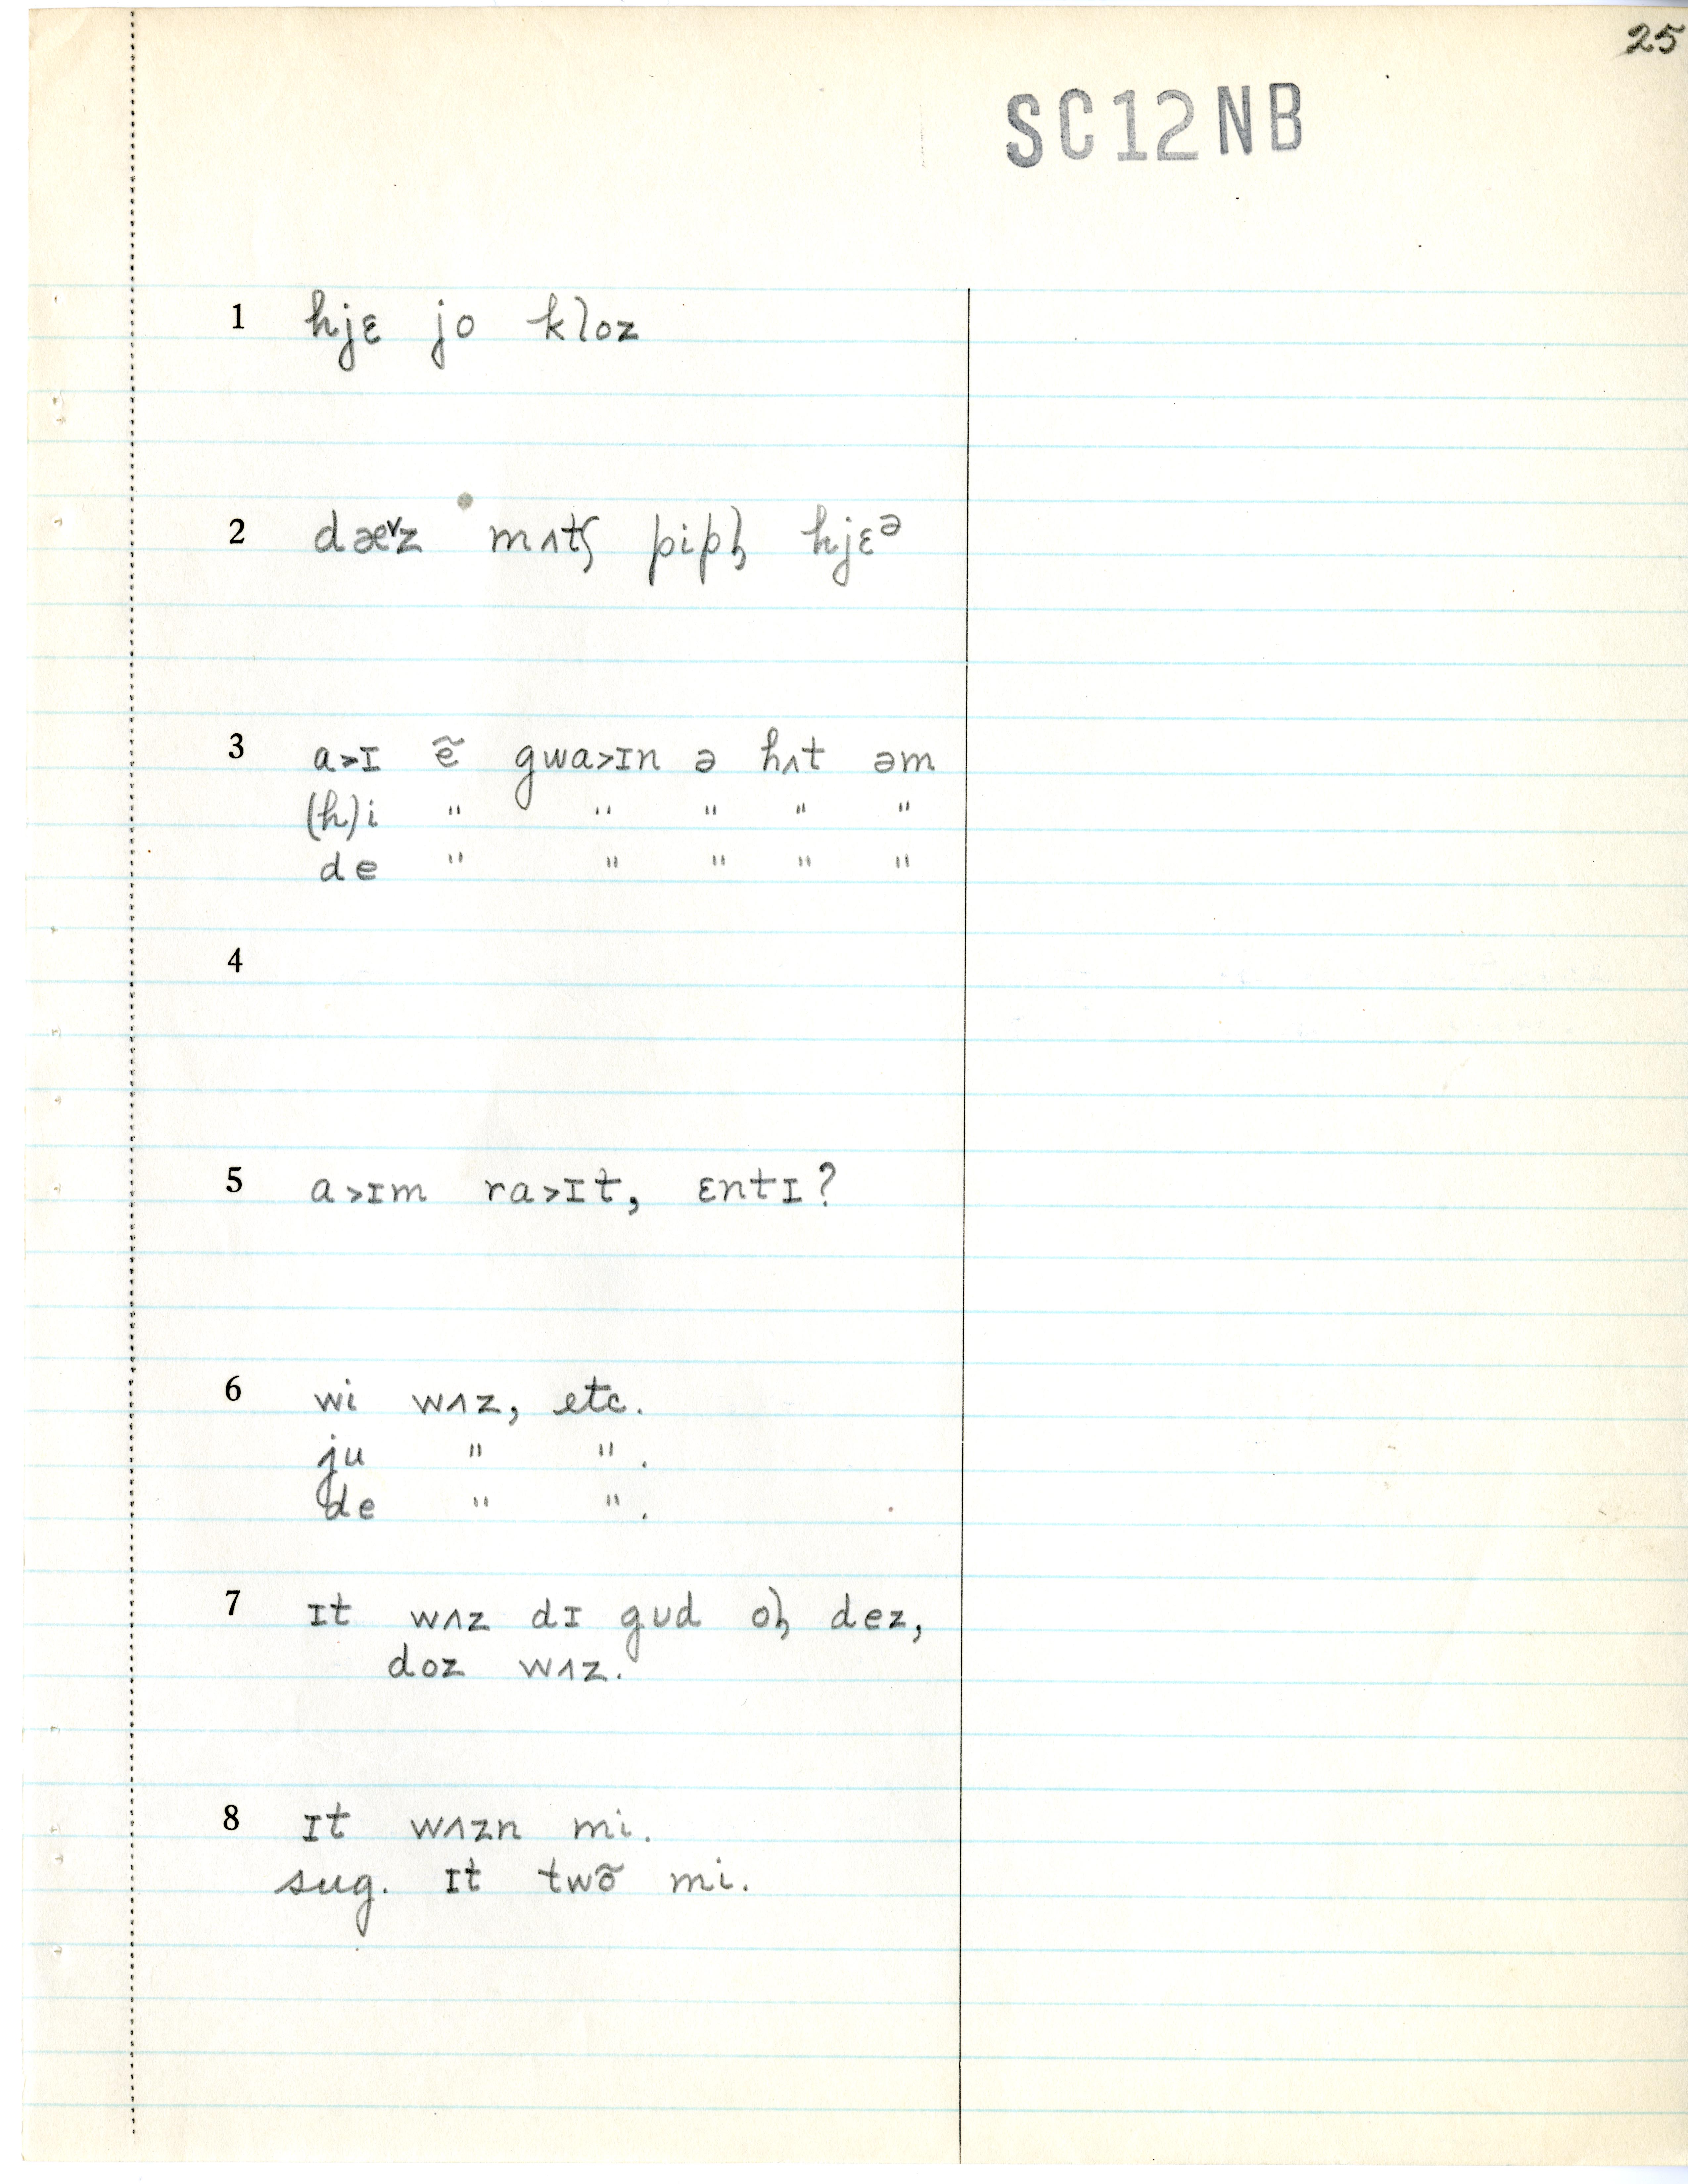 25
SC12NB
1 hjɛ jo kloz
2 dæ˅z mʌtʃ pipl̩ hjɛᵊ
3 a>ɪ ẽ gwa>ɪn ə hʌt əm
(h)i " " " " "
de " " " " "
4
5 a>ɪm ra>ɪt, ɛntɪ?
6 wi wʌz, etc.
ju " ".
de " ".
7 ɪt wʌz dɪ gud ol̩ dez,
doz wʌz.
8 ɪt wʌzn mi.
sug. ɪt twõ mi.